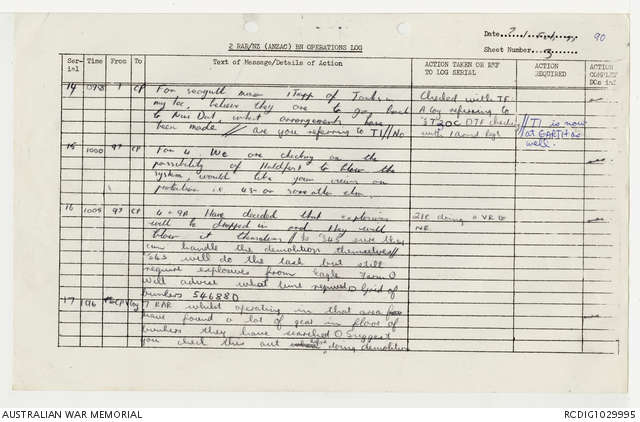 Date 2
90
2 RAR/NZ (ANZAC) BN OPERATIONS LOG
Sheet Number 3
Ser-ial Time From To Text of Message/Details of Action ACTION TAKEN OR REF TO LOG SERIAL ACTION REQUIRED ACTION COMPLET DOs inI
14 CP For seagull max of
my loc, believe they are to go back
to Nui Dat, what arrangements have
been made // are you referring to T1 // No
Checked with TF
A Coy referring to
checking
with
// T1 is now
at EARTH as
well.
15 1000 97 CP For 4 We are checking on the
possibility of to blow the
system, would like your views on
protection i.e. or some other elm.
16 1005 97 CP 4 + 9A Have decided that explosives
will be dropped in and they will
blow it themselves // Is S45 sure they
can handle the demolition themselves //
S45 will do the task but still
require explosives from Eagle Farm O
Will advise what time required O Grid of
bunkers 546880
2IC doing a VR to
NE.
17 7 RAR whilst operating in that area
have found a lot of gear in floor of
bunkers they have searched O Suggest
you check this out doing demolition
AUSTRALIAN WAR MEMORIAL
RCDIG1029995